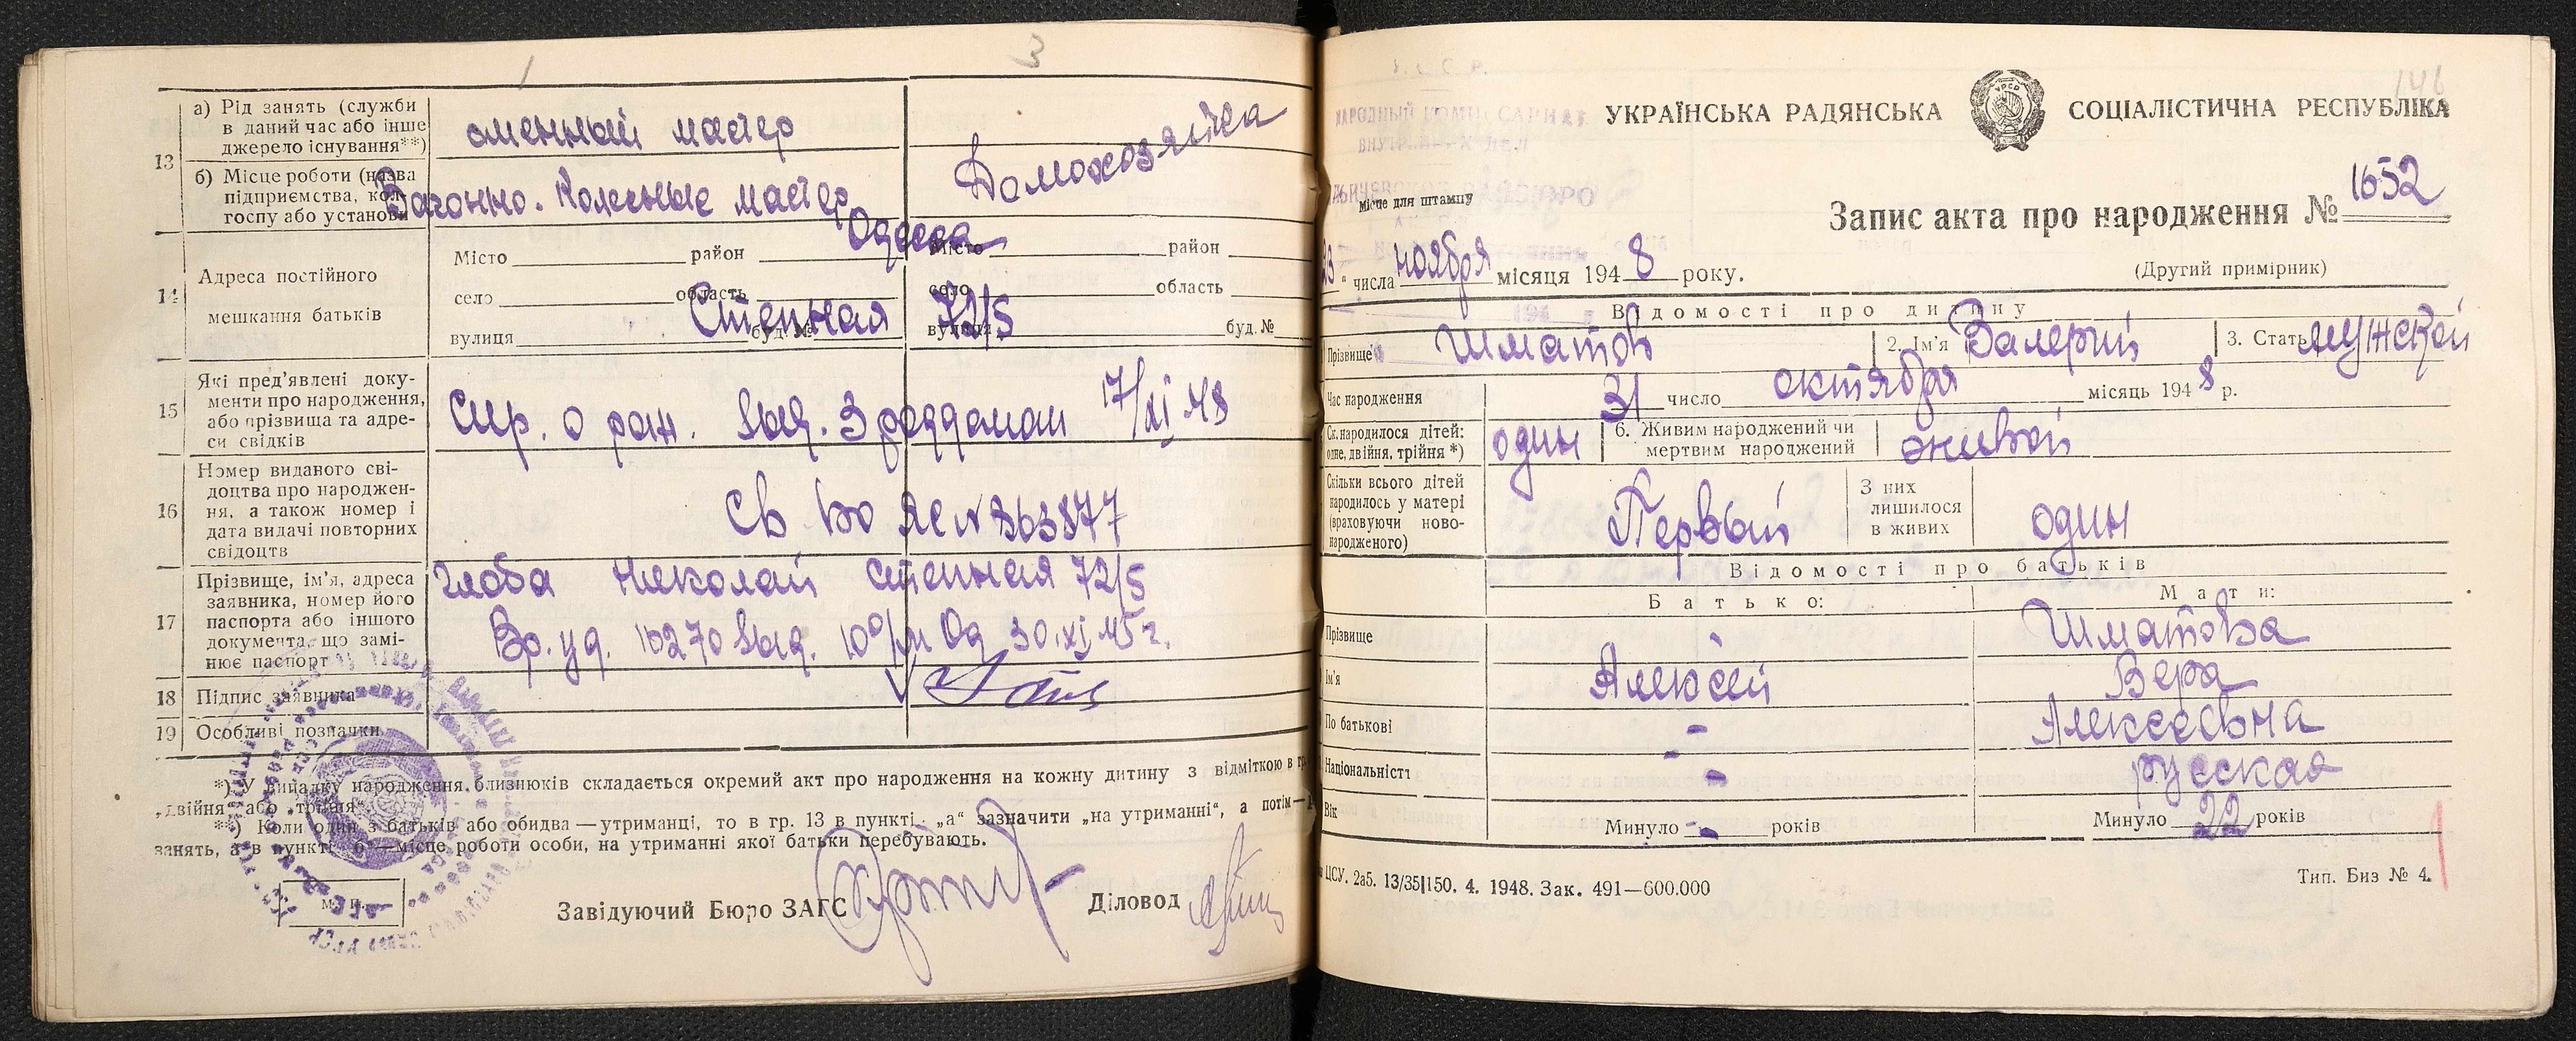 1
3
13
а) Рід занять (служби
в даний час або інше
джерело існування**)
сменный мастер
Домохозяйка
б) Місце роботи (назва
підприємства, кол-
госпу або установи
Вагонно. Колесные мастер
14
Адреса постійного
мешкання батьків
Одесса
Місто район
село область
вулиця буд. №
Місто район
село область
вулиця буд. №
Степная 72/5
15
Які пред'явлені доку-
менти про народження,
або прізвища та адре-
си свідків
Спр. о рож. выд. 3 роддомом 17/XI 48
16
Номер виданого сві-
доцтва про народжен-
ня, а також номер і
дата видачі повторних
свідоцтв
Св во ЯС № 363877
17
Прізвище, ім'я, адреса
заявника, номер його
паспорта або іншого
документа, що замі-
нює паспорт
Глоба Николай Степная 72/5
Вр. уд. 10270 выд. 10 о/м Од 30.XI 45 г.
18 Підпис заявника
19 Особливі позначки
*) У випадку народження близнюків складається окремий акт про народження на кожну дитину з відміткою в гр.
„двійня" або „трійня"
**) Коли один з батьків або обидва — утриманці, то в гр. 13 в пункті „а" зазначити „на утриманні", а потім —
занять, а в пункті „б" — місце роботи особи, на утриманні якої батьки перебувають.
М. П.
Завідуючий Бюро ЗАГС
Діловод
146
УКРАЇНСЬКА РАДЯНСЬКА СОЦІАЛІСТИЧНА РЕСПУБЛІКА
УРСР
місце для штампу
Запис акта про народження № 1652
23 " числа ноября місяця 1948 року.
(Другий примірник)
Відомості про дитину
Прізвище Шматов 2. Ім'я Валерий 3. Стать мужской
Час народження 31 число октября місяць 1948 р.
Ск. народилося дітей:
одне, двійня, трійня *)
один
6. Живим народжений чи
мертвим народжений
живой
Скільки всього дітей
народилось у матері
(враховуючи ново-
народженого)
Первый
З них
лишилося
в живих
один
Відомості про батьків
Батько: Мати:
Прізвище - Шматова
Ім'я Алексей Вера
По батькові - Алексеевна
Національність - русская
Вік Минуло - років Минуло 22 років
ЦСУ. 2а5. 13/35|150. 4. 1948. Зак. 491—600.000
Тип. Биз № 4.